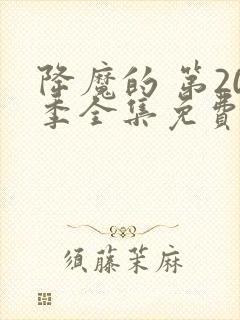 降魔的 第20
季全集免費
須藤茉麻